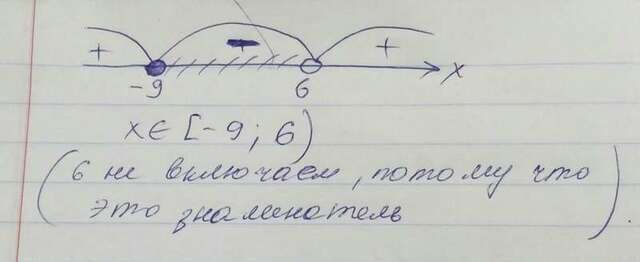 + - + x
-9 6
x ∈ [-9; 6)
(6 не включаем, потому что
это знаминатель).